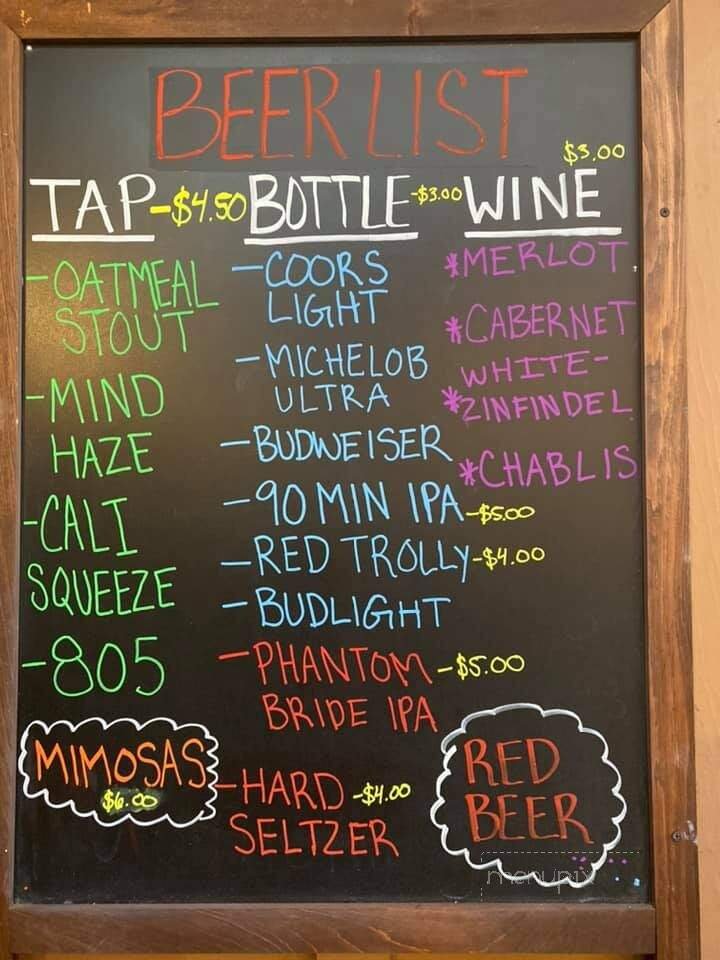 BEER LIST
TAP-$4.50
-OATMEAL
STOUT
-MIND
HAZE
-CALI
SQUEEZE
-805
MIMOSAS
$6.00
BOTTLE-$3.00
-COORS
LIGHT
-MICHELOB
ULTRA
-BUDWEISER
-90 MIN IPA-$5.00
-RED TROLLY-$4.00
-BUDLIGHT
-PHANTOM-$5.00
BRIDE IPA
-HARD-$4.00
SELTZER
$3.00
WINE
*MERLOT
*CABERNET
WHITE-
*ZINFINDEL
*CHABLIS
RED
BEER
menupix